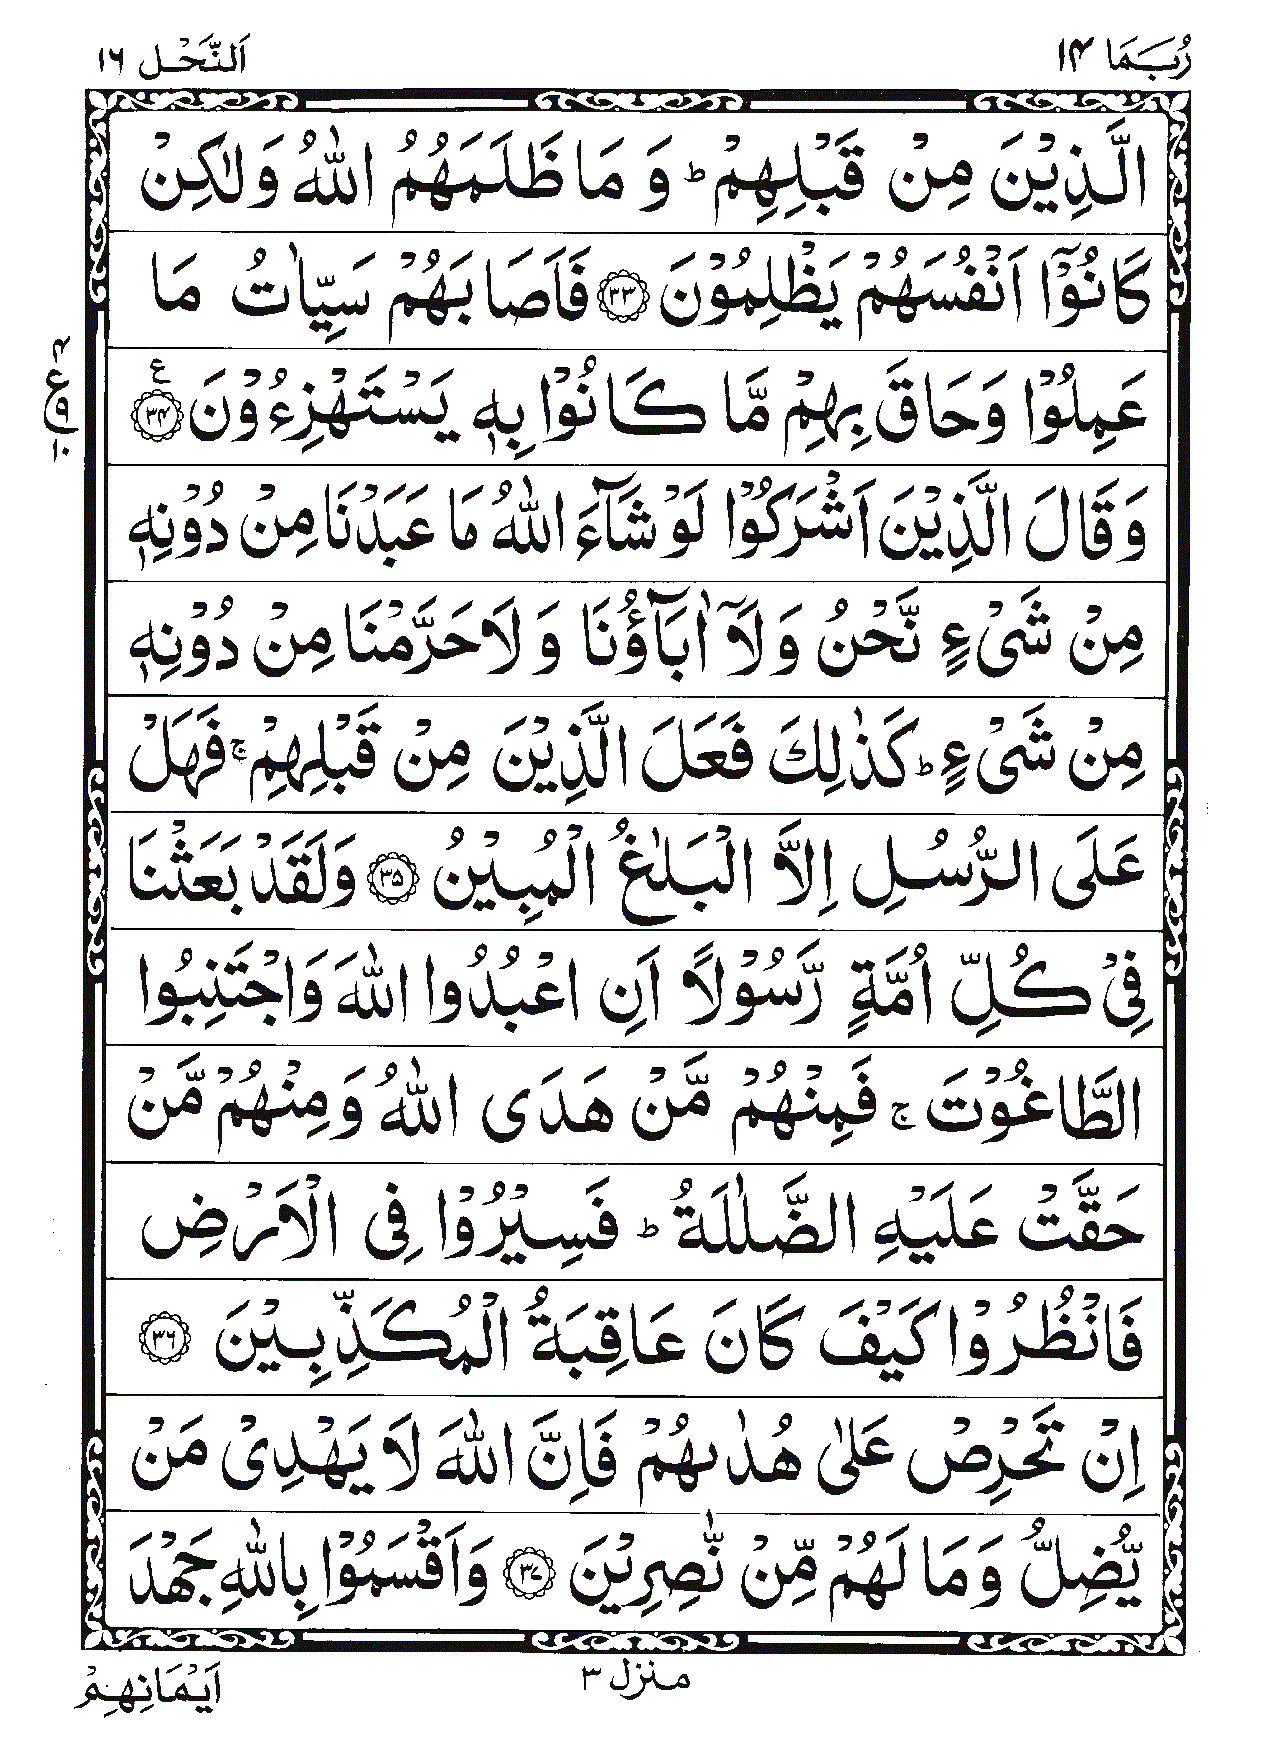 رُبَـمَا ١٤
اَلنَّحْـل ١٦
الَّـذِيْنَ مِنْ قَبْـلِهِمْ ؕ وَ مَا ظَلَمَهُمُ اللّٰهُ وَلٰكِنْ
كَانُوْۤا اَنْفُسَهُمْ يَظْلِمُوْنَ ﴿٣٣﴾ فَاَصَابَهُمْ سَيِّاٰتُ مَا
عَمِلُوْا وَحَاقَ بِهِمْ مَّا كَانُوْا بِهٖ يَسْتَهْزِءُوْنَ ﴿٣٤﴾ ع
٤
ع ٩
١٠
وَقَالَ الَّذِيْنَ اَشْرَكُوْا لَوْ شَآءَ اللّٰهُ مَا عَبَدْنَا مِنْ دُوْنِهٖ
مِنْ شَىْءٍ نَّحْنُ وَ لَاۤ اٰبَآؤُنَا وَ لَا حَرَّمْنَا مِنْ دُوْنِهٖ
مِنْ شَىْءٍ ؕ كَذٰلِكَ فَعَلَ الَّذِيْنَ مِنْ قَبْلِهِمْ ۚ فَهَلْ
عَلَى الرُّسُـلِ اِلَّا الْبَلٰغُ الْمُبِيْنُ ﴿٣٥﴾ وَلَقَدْ بَعَثْنَا
فِىْ كُـلِّ اُمَّةٍ رَّسُوْلًا اَنِ اعْبُدُوا اللّٰهَ وَاجْتَنِبُوا
الطَّاغُوْتَ ۚ فَمِنْهُمْ مَّنْ هَدَى اللّٰهُ وَمِنْهُمْ مَّنْ
حَقَّتْ عَلَيْهِ الضَّلٰلَةُ ؕ فَسِيْرُوْا فِى الْاَرْضِ
فَانْظُرُوْا كَيْفَ كَانَ عَاقِبَةُ الْمُكَذِّبِـيْنَ ﴿٣٦﴾
اِنْ تَحْرِصْ عَلٰى هُدٰٮهُمْ فَاِنَّ اللّٰهَ لَا يَهْدِىْ مَنْ
يُّضِلُّ وَمَا لَهُمْ مِّنْ نّٰصِرِيْنَ ﴿٣٧﴾ وَاَقْسَمُوْا بِاللّٰهِ جَهْدَ
منزل ٣
اَيْمَانِهِـمْ